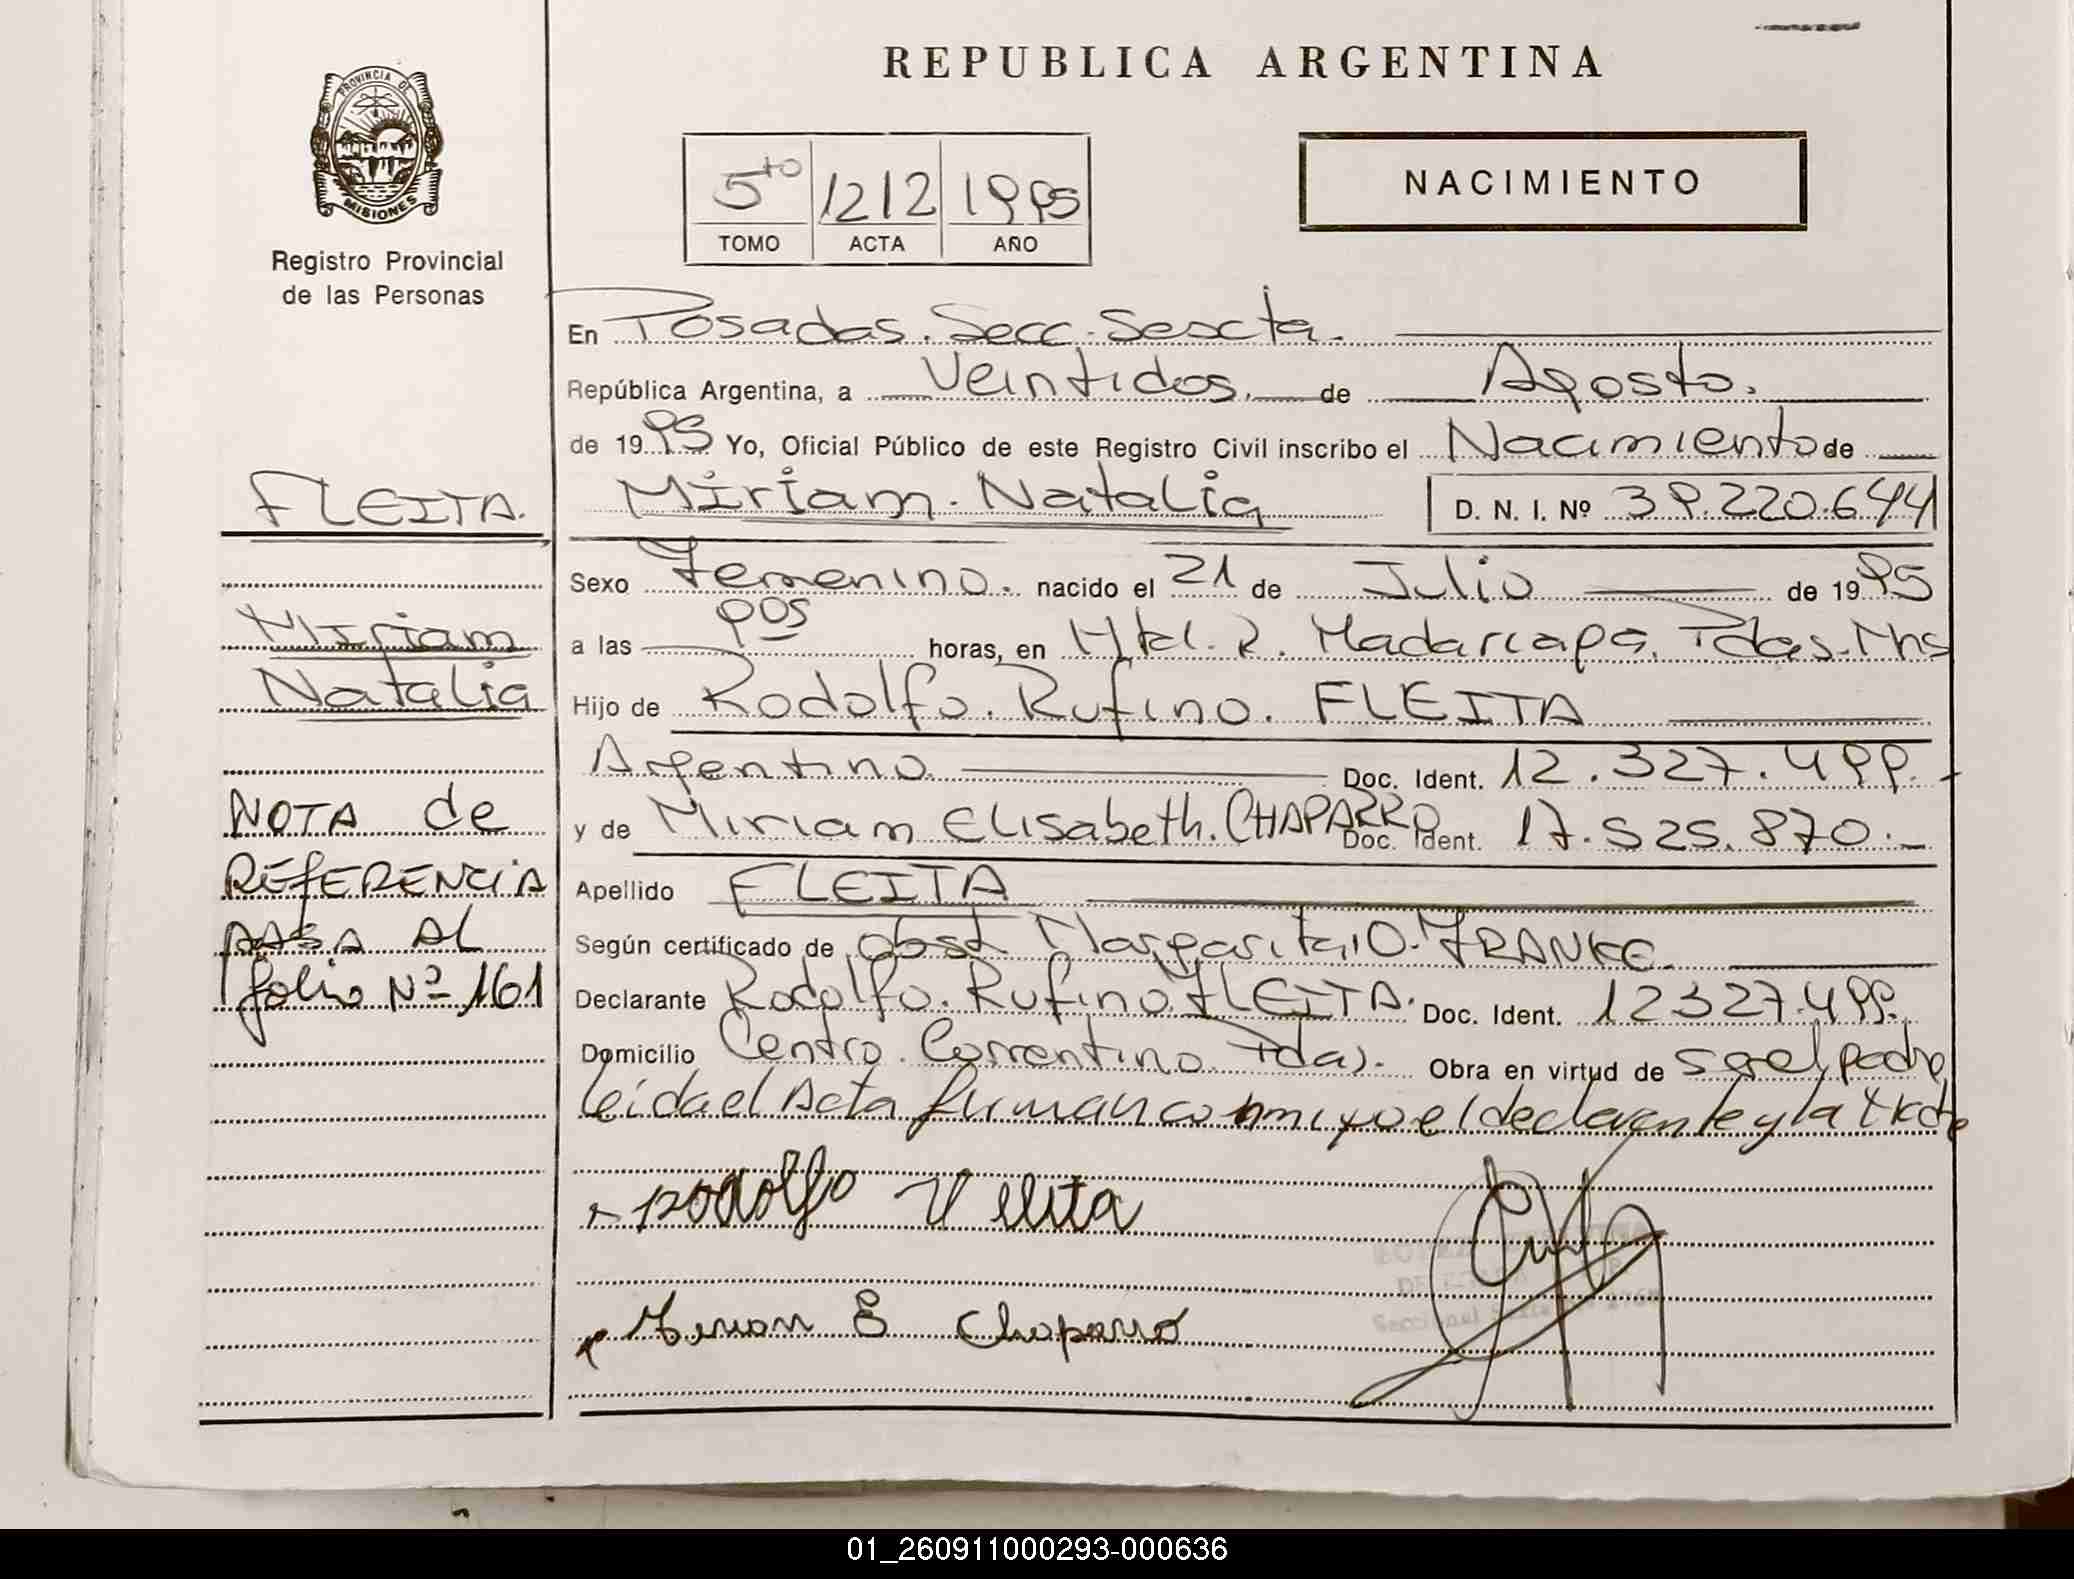 REPUBLICA ARGENTINA
PROVINCIA DE
MISIONES
Registro Provincial
de las Personas
5to 1212 1995
TOMO ACTA AÑO
NACIMIENTO
En Posadas. Secc. Sescta.
República Argentina, a Veintidos. de Agosto.
de 1995 Yo, Oficial Público de este Registro Civil inscribo el Nacimiento de
Miriam. Natalia D. N. I. Nº 39.220.644
Sexo Femenino. nacido el 21 de Julio de 1995
a las 9 05 horas, en Htal. R. Madariaga. Pdas. Mns
Hijo de Rodolfo. Rufino. FLEITA
Argentino Doc. Ident. 12.327.499.-
y de Miriam Elisabeth. CHAPARRO Doc. Ident. 17.525.870.-
Apellido FLEITA
Según certificado de obst Margarita O. FRANKE
Declarante Rodolfo. Rufino. FLEITA. Doc. Ident. 12327.499.
Domicilio Centro. Correntino Pdas. Obra en virtud de ser el padre
leida el Acta firman conmigo el declarante y la
Rodolfo Fleita
E Chaparro
FLEITA.
Miriam
Natalia
NOTA de
REFERENCIA
PASA AL
folio Nº 161
01_260911000293-000636